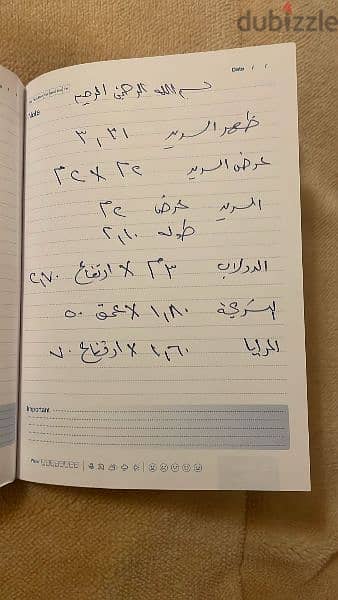 dubizzle
Date / /
Note
بسم الله الرحمن الرحيم
ظهر السرير ٣,٣١
عرض السرير ٢٢ X ٢٢
السرير عرض ٢٢
طوله ٢,١٠
الدولاب ٣م X ارتفاع ٢,٧٠
التسريحة ١,٨٠ X عمق ٥٠
المرايا ١,٦٠ X ارتفاع ٧٠
Important